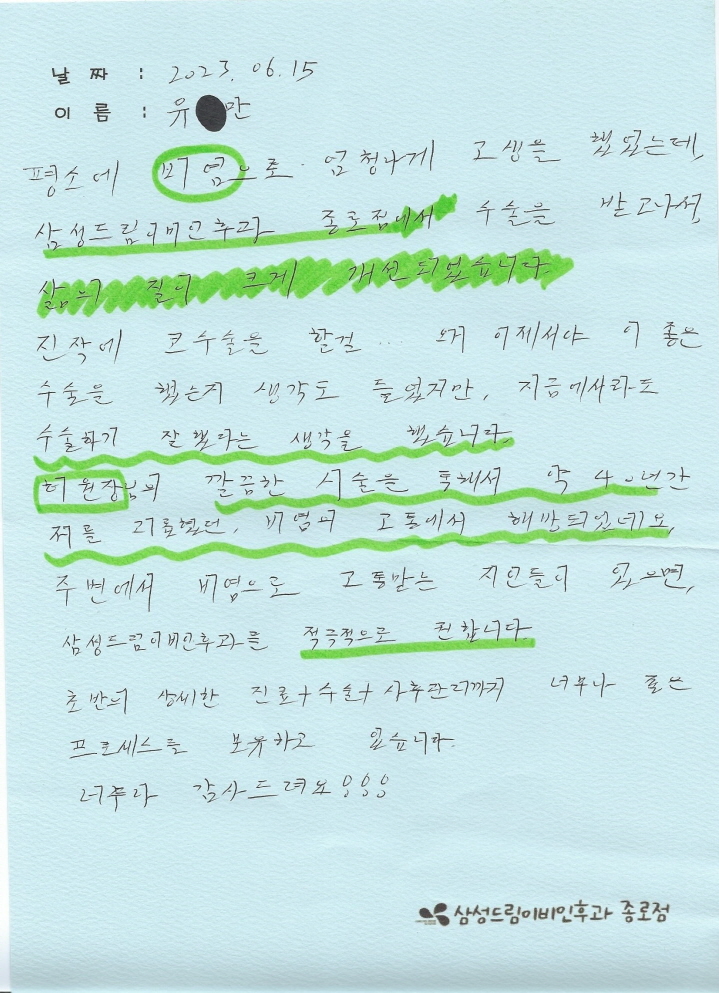 날 짜 : 2023. 06. 15
이 름 : 유 만
평소에 비염으로 엄청나게 고생을 했었는데,
삼성드림이비인후과 종로점에서 수술을 받고나서,
삶의 질이 크게 개선되었습니다.
진작에 코수술을 할걸.. 왜 이제서야 이 좋은
수술을 했는지 생각도 들었지만, 지금에사라도
수술하기 잘했다는 생각을 했습니다.
허원장님의 깔끔한 시술을 통해서 약 40년간
저를 괴롭혔던, 비염의 고통에서 해방되었네요,
주변에서 비염으로 고통받는 지인들이 있으면,
삼성드림이비인후과를 적극적으로 권합니다.
초반의 상세한 진료+수술+사후관리까지 너무나 좋은
프로세스를 보유하고 있습니다.
너무나 감사드려요!!!
삼성드림이비인후과 종로점